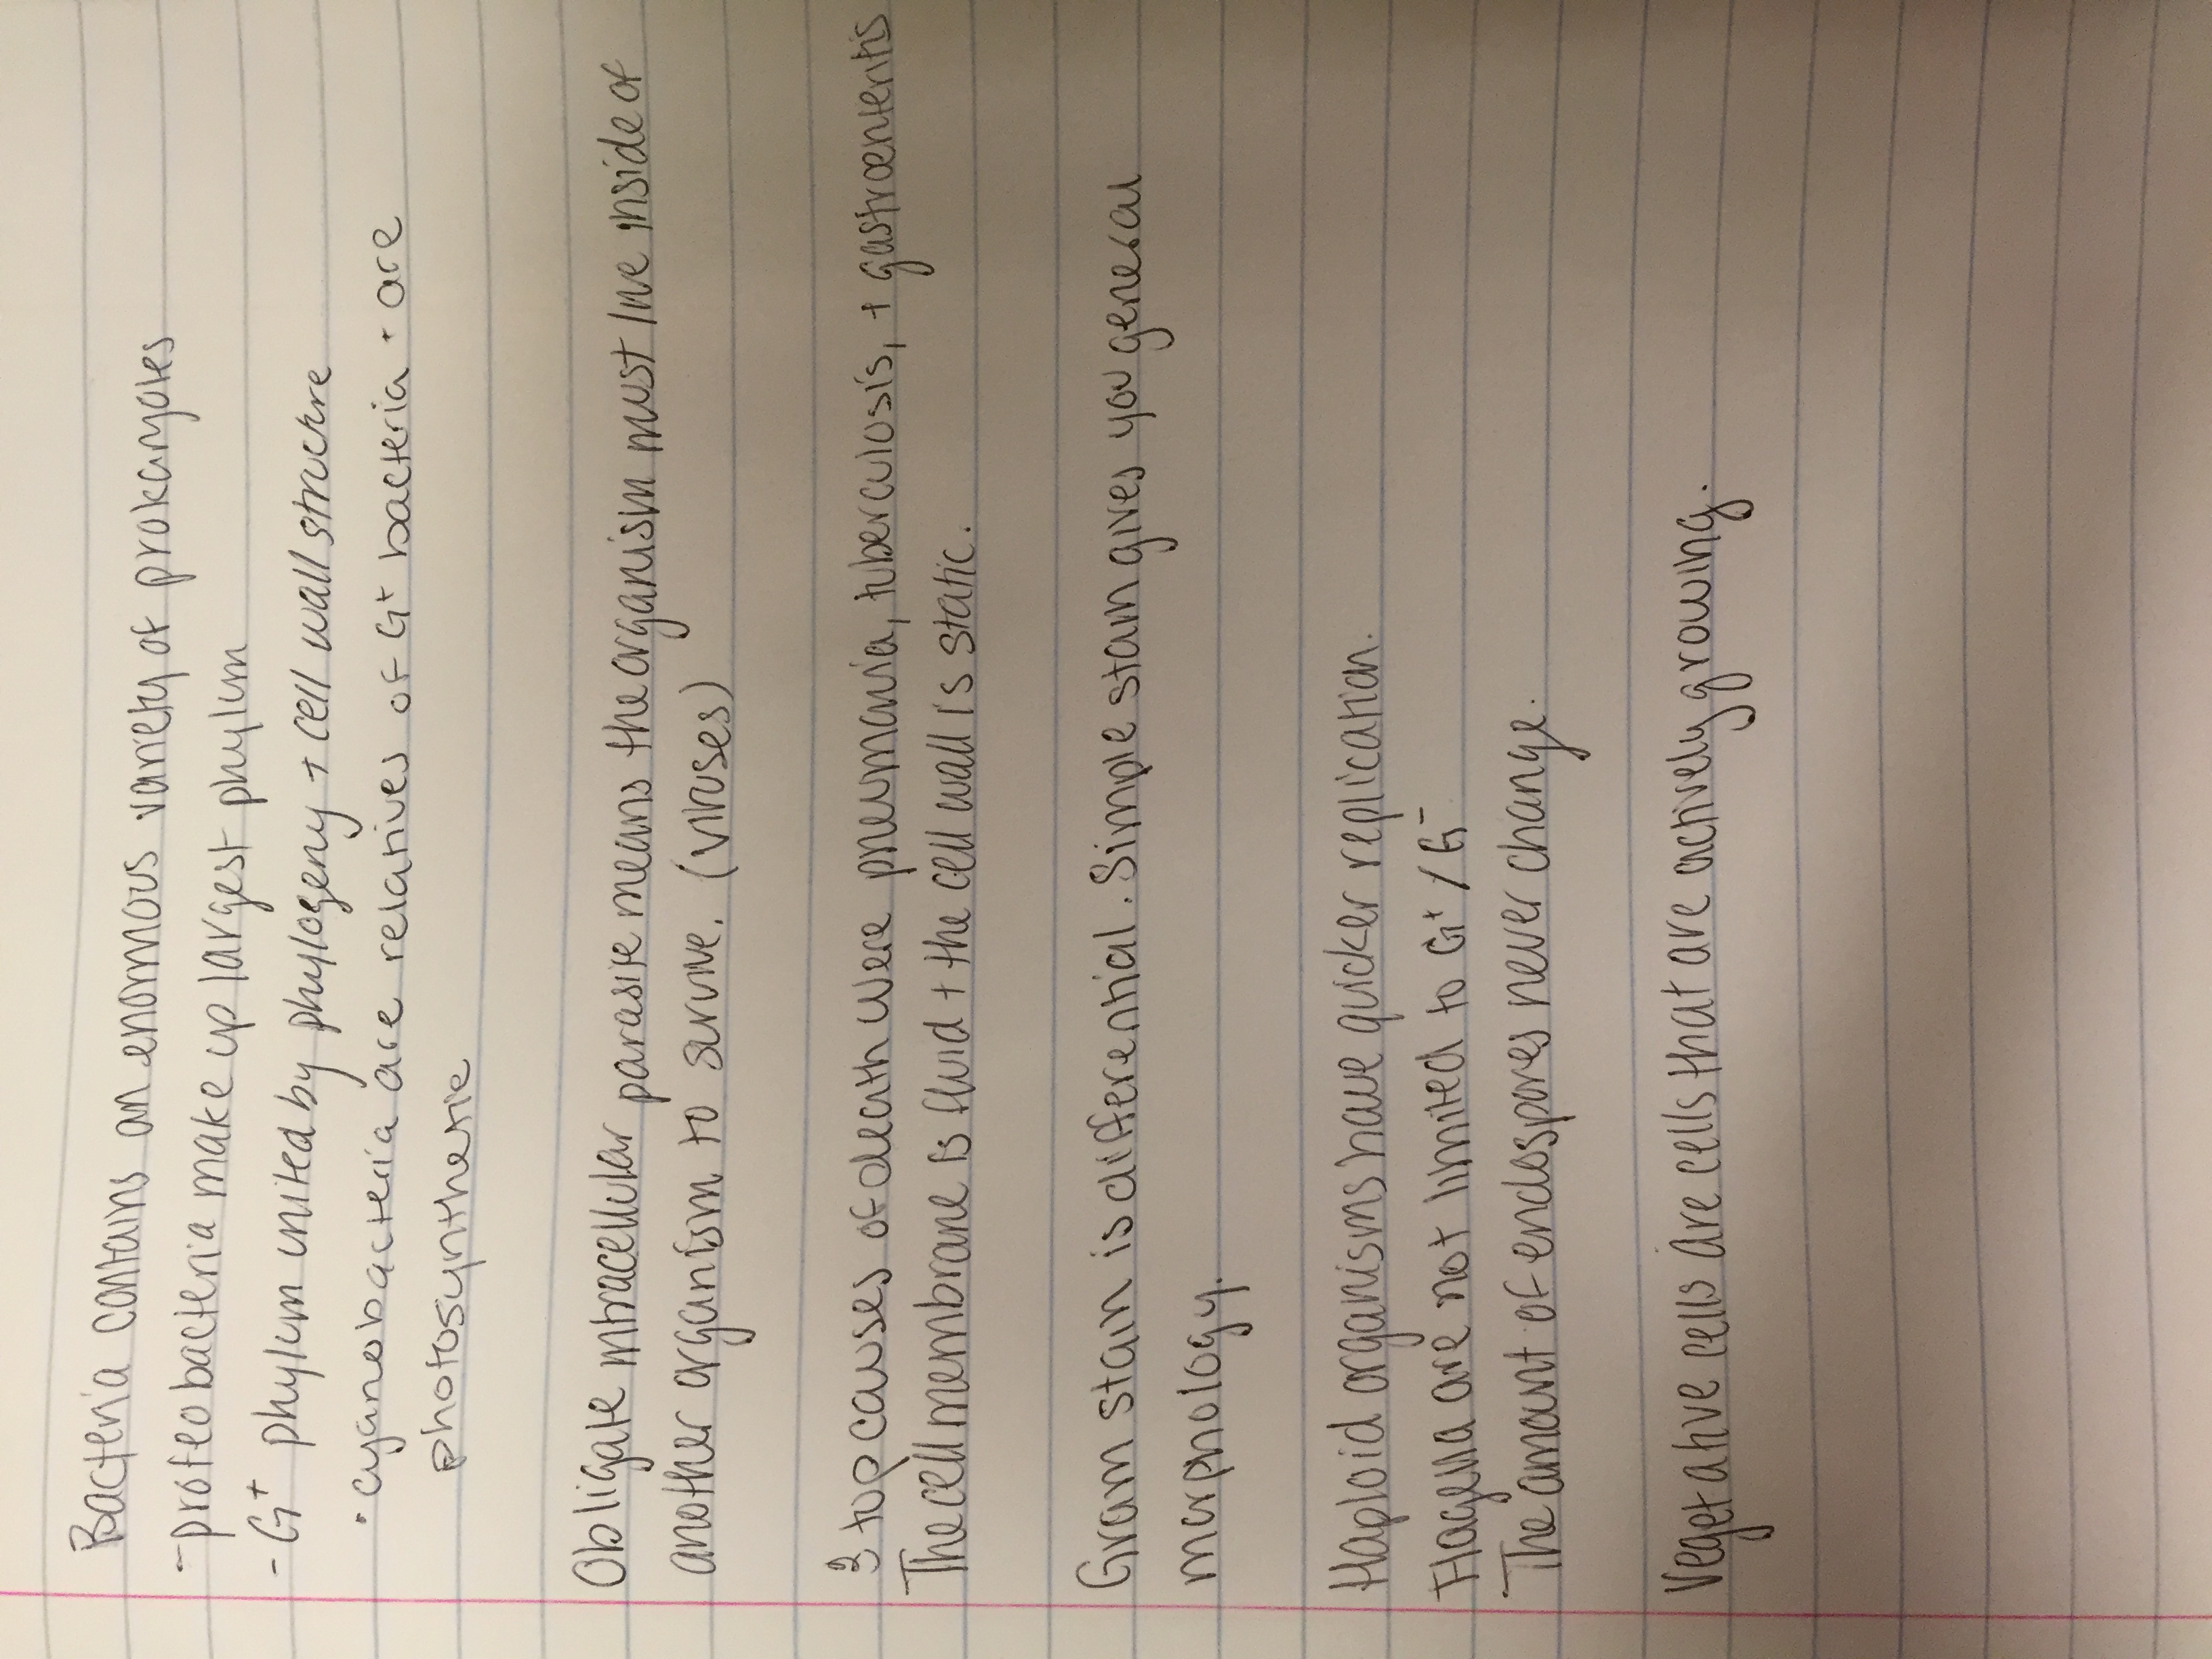 Bacteria contains an enormous variety of prokaryotes
- proteobacteria make up largest phylum
- G+ phylum united by phylogeny + cell wall structure
• cyanobacteria are relatives of G+ bacteria + are
photosynthetic
Obligate intracellular parasite means the organism must live inside of
another organism to survive. (viruses)
3 top causes of death were pneumonia, tuberculosis, + gastroenteritis
The cell membrane is fluid + the cell wall is static.
Gram stain is differential. Simple stain gives you general
morphology.
Haploid organisms have quicker replication.
Flagella are not limited to G+ / G-
The amount of endospores never change.
Vegetative cells are cells that are actively growing.